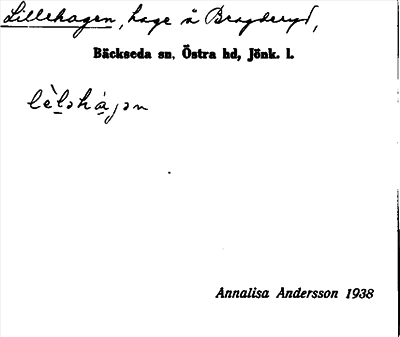 Lillehagen, hage å Bragderyd,
Bäckseda sn, Östra hd, Jönk. l.
lèl̠əhá̠ɡən
Annalisa Andersson 1938